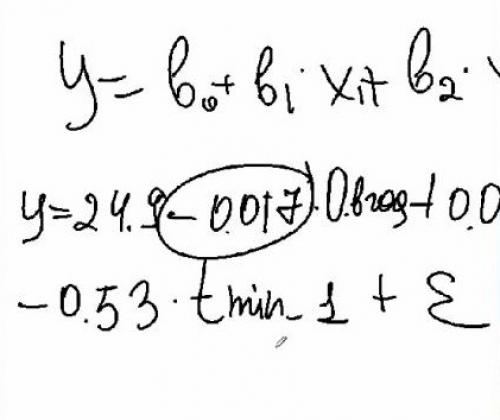 y = b₀ + b₁ · x₁ + b₂ ·
y = 24.9 - 0.017 · + 0.0
- 0.53 · t min - 1 + ε